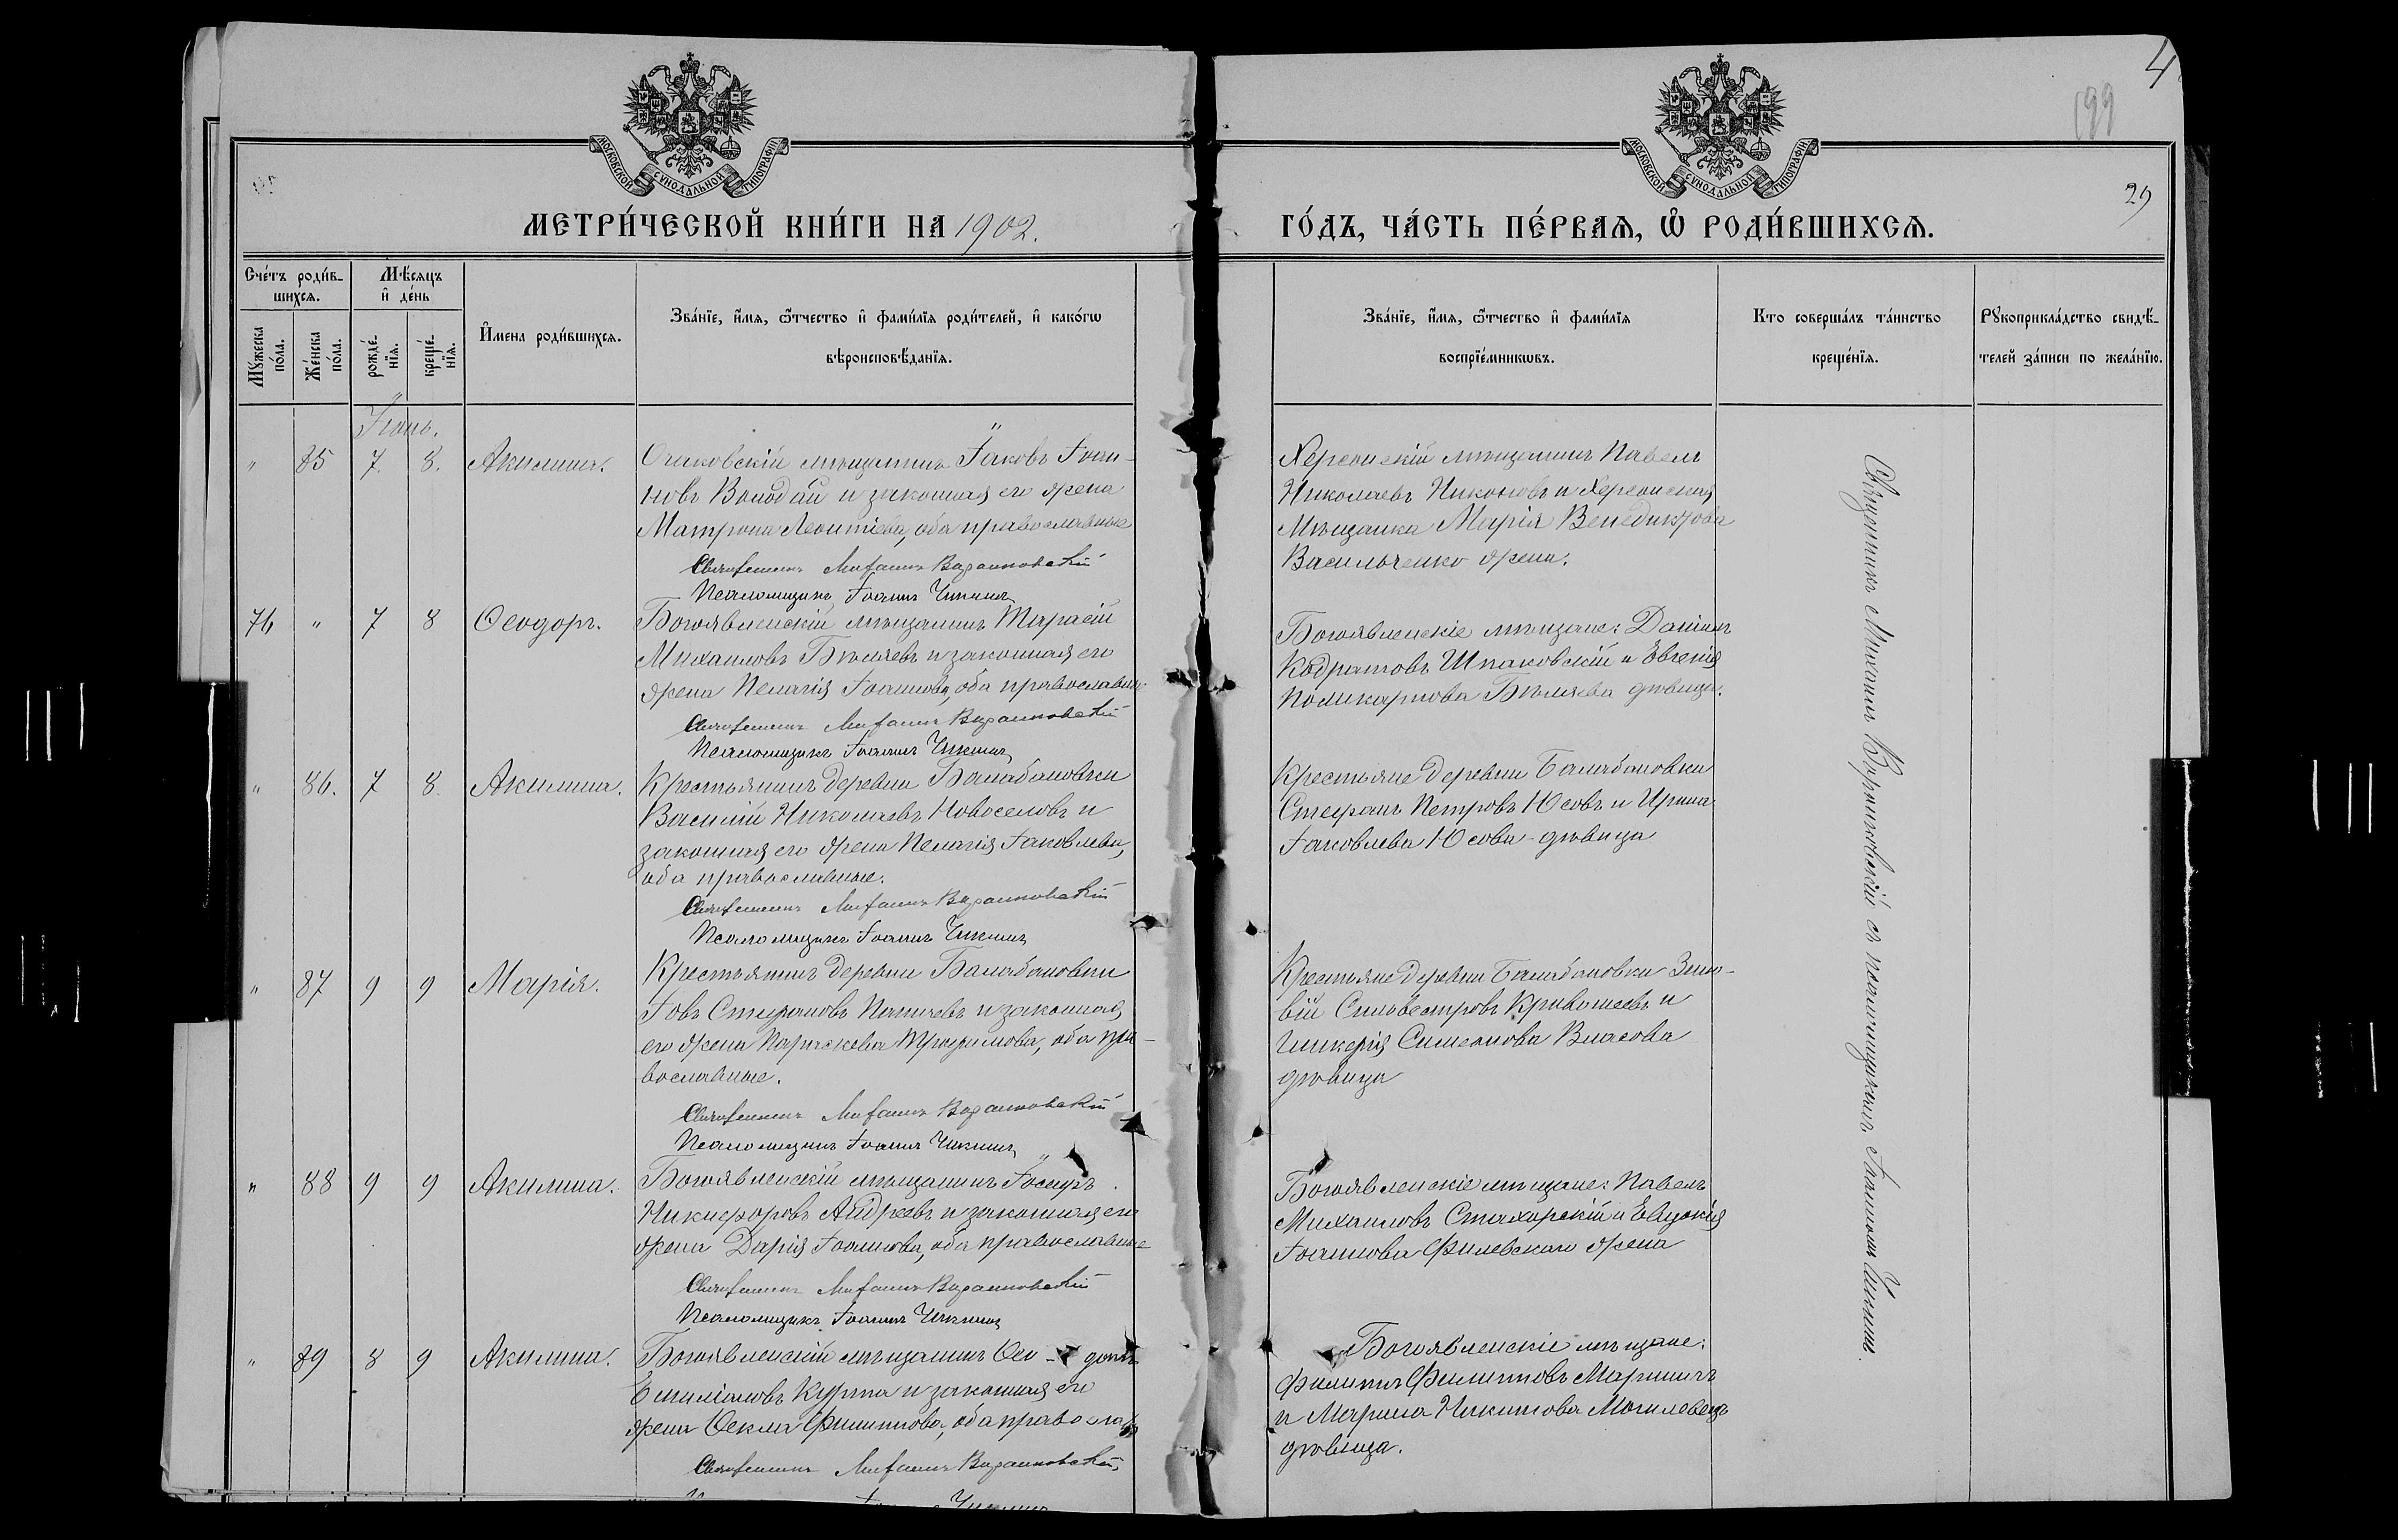 4
199
29
МОСКОВСКОЙ СѴНОДАЛЬНОЙ ТИПОГРАФІИ
МОСКОВСКОЙ СѴНОДАЛЬНОЙ ТИПОГРАФІИ
МЕТРИ́ЧЕСКОЙ КНИ́ГИ НА 1902.
ГО́ДЪ, ЧА́СТЬ ПЕ́РВАѦ, Ѽ РОДИ́ВШИХСѦ.
Сче́тъ роди́в-
шихсѧ.
Мꙋжеска по́ла.
Же́нска по́ла.
Мѣ́сяцъ
и҆ де́нь
рожде́-нїѧ.
креще́-нїѧ.
И҆мена роди́вшихсѧ.
Зва́нїе, и҆́мѧ, ѻ҆́тчество и҆ фами́лїѧ роди́телей, и҆ како́гѡ
вѣроисповѣ́данїѧ.
Зва́нїе, и҆́мѧ, ѻ҆́тчество и҆ фами́лїѧ
воспрїе́мникѡвъ.
Кто соверша́лъ та́инство
креще́нїѧ.
Рꙋкоприкла́дство свидѣ́-
телей за́писи по жела́нїю.
Іюнь.
" 85 7. 8. Акилина.
Очаковскій мѣщанинъ Іаковъ Іоан-
новъ Володай и законная его жена
Матрона Леонтіева, оба православные
Священникъ Михаилъ Варзановскій
Псаломщикъ Іоаннъ Чикинъ
Херсонскій мѣщанинъ Павелъ
Николаевъ Никоновъ и Херсонская
Мѣщанка Марія Венедиктова
Васильченко жена.
76 " 7 8 Ѳеодоръ.
Богоявленскій мѣщанинъ Тарасій
Михаиловъ Бѣляевъ и законная его
жена Пелагія Іоаннова, оба православные
Священникъ Михаилъ Варзановскій
Псаломщикъ Іоаннъ Чикинъ
Богоявленскіе мѣщане: Даніилъ
Кодратовъ Шпаковскій и Евгенія
Поликарпова Бѣляева дѣвица.
" 86. 7 8. Акилина.
Крестьянинъ деревни Балабановки
Василій Николаевъ Новоселовъ и
законная его жена Пелагія Іаковлева,
оба православные.
Священникъ Михаилъ Варзановскій
Псаломщикъ Іоаннъ Чикинъ
Крестьяне деревни Балабановки
Стефанъ Петровъ Юсовъ и Ирина
Іаковлева Юсова - дѣвица
" 87 9 9 Марія.
Крестьянинъ деревни Балабановки
Іовъ Стефановъ и законная
его жена Параскева Трофимова, оба пра-
вославные.
Священникъ Михаилъ Варзановскій
Псаломщикъ Іоаннъ Чикинъ
Крестьяне деревни Балабановки Зино-
вій Сильвестровъ Кривошеевъ и
Гликерія Симеонова Власова
дѣвица
" 88 9 9 Акилина.
Богоявленскій мѣщанинъ Іосифъ
Никифоровъ Андреевъ и законная его
жена Дарія Іоаннова, оба православные
Священникъ Михаилъ Варзановскій
Псаломщикъ Іоаннъ Чикинъ
Богоявленскіе мѣщане: Павелъ
Михаиловъ Стахорскій и Евдокія
Іоаннова Филевская жена
" 89 8 9 Акилина.
Богоявленскій мѣщанинъ
Емиліановъ Курта и законная его
жена Ѳекла Филиппова, оба православ
Священникъ Михаилъ Варзановскій
Богоявленскіе мѣщане:
Филиппъ Филипповъ
и Марина Никитова Могилевецъ
дѣвица.
Священникъ Михаилъ Варзановскій съ псаломщикомъ Іоанномъ Чикинымъ